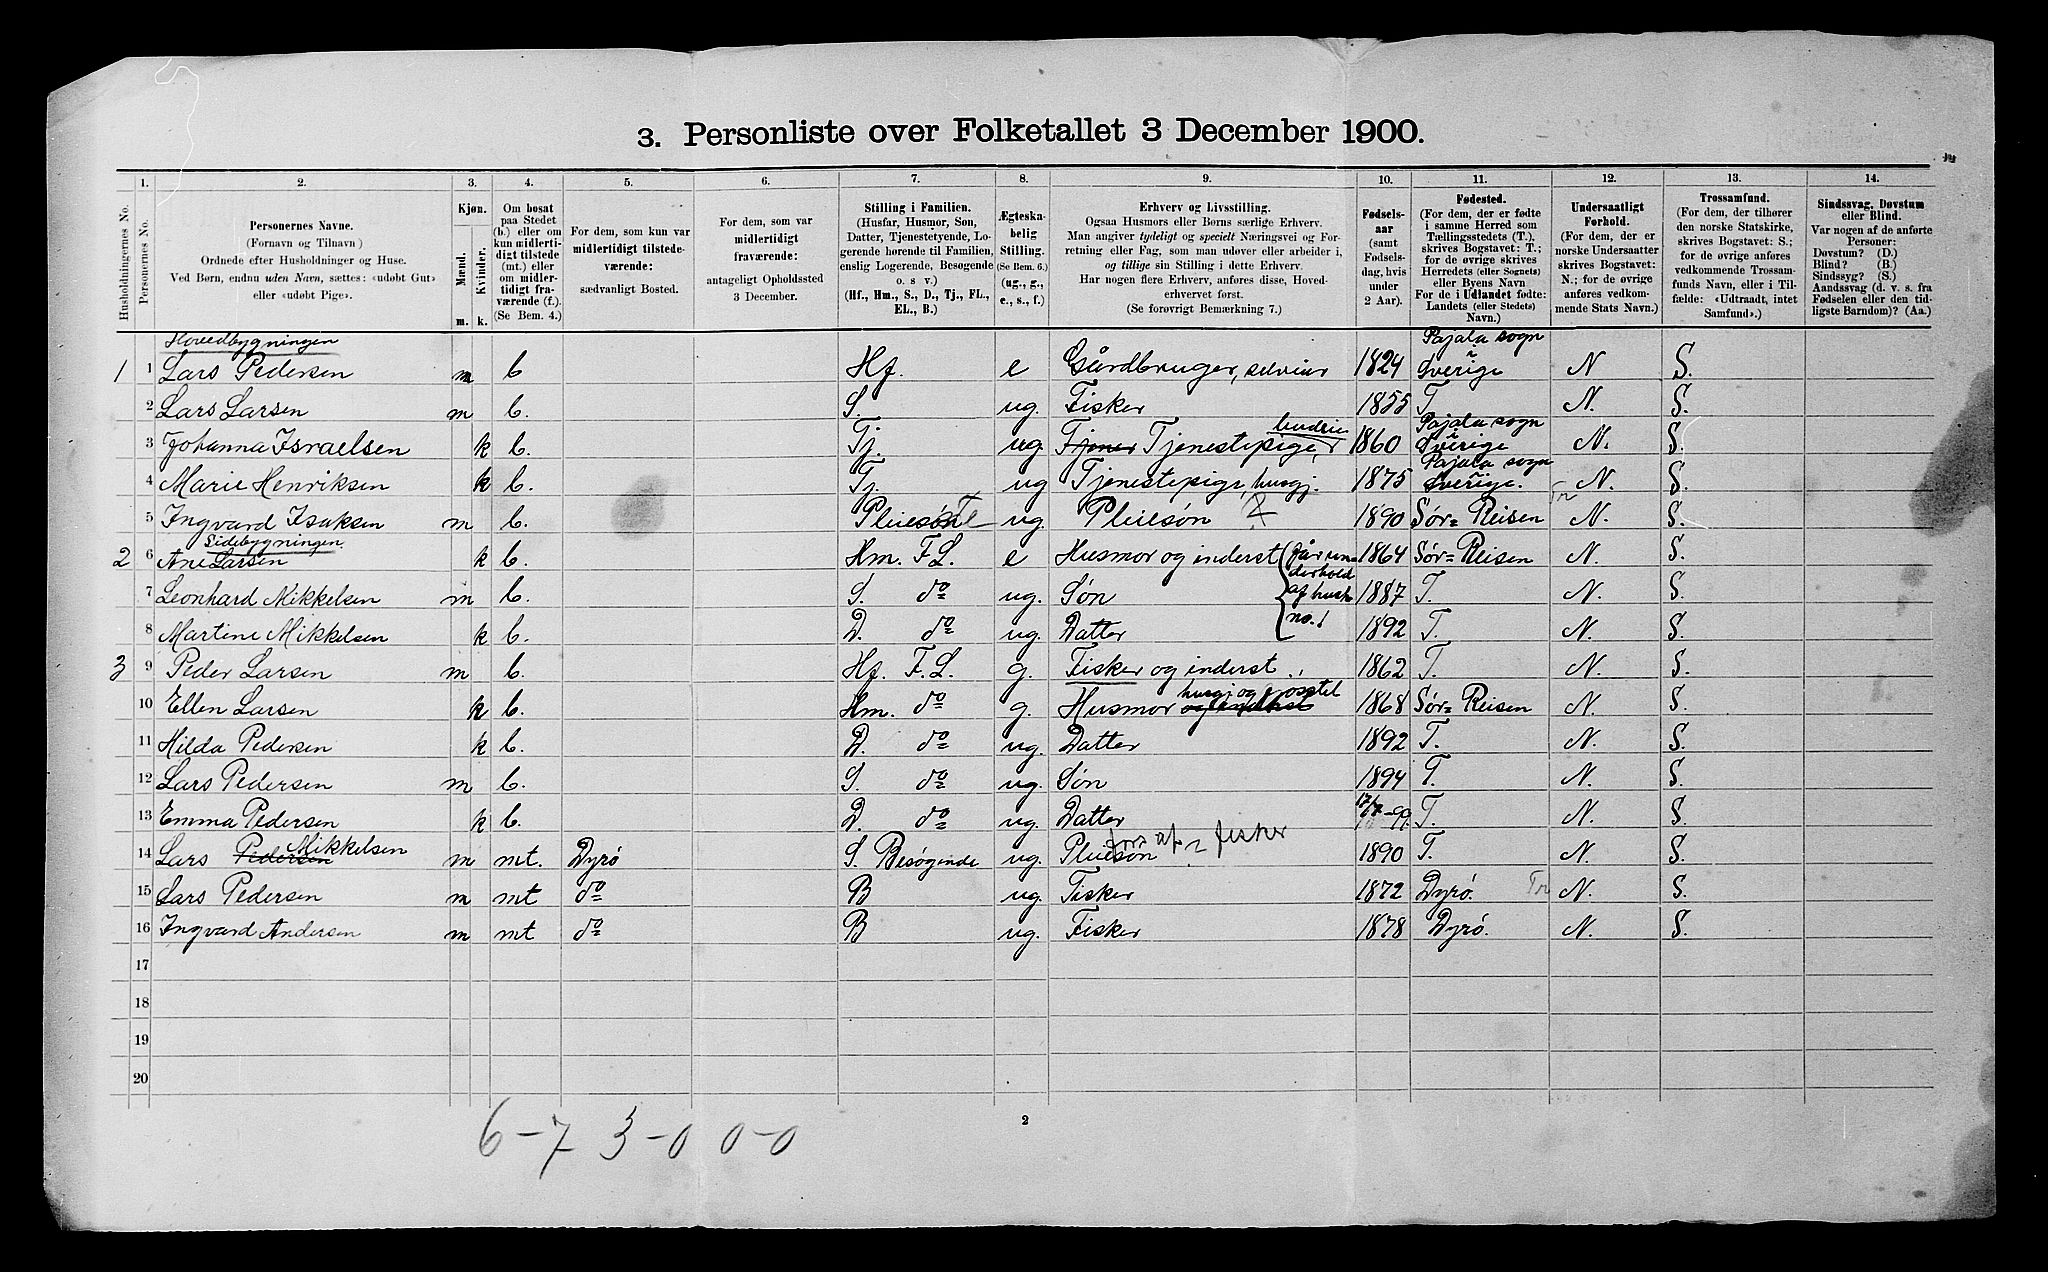 3. Personliste over Folketallet 3 December 1900.
1. 2. 3. 4. 5. 6. 7. 8. 9. 10. 11. 12. 13. 14.
Husholdningernes No.
Personernes No.
Personernes Navne.
(Fornavn og Tilnavn)
Ordnede efter Husholdninger og Huse.
Ved Børn, endnu uden Navn, sættes: «udøbt Gut»
eller «udøbt Pige».
Kjøn.
Mænd. Kvinder.
m. k.
Om bosat
paa Stedet
(b.) eller om
kun midlerti-
digt tilstede
(mt.) eller
om midler-
tidigt fra-
værende (f.).
(Se Bem. 4.)
For dem, som kun var
midlertidigt tilstede-
værende:
sædvanligt Bosted.
For dem, som var
midlertidigt
fraværende:
antageligt Opholdssted
3 December.
Stilling i Familien.
(Husfar, Husmor, Søn,
Datter, Tjenestetyende, Lo-
gerende hørende til Familien,
enslig Logerende, Besøgende
o. s v.)
(Hf., Hm., S., D., Tj., FL.,
EL., B.)
Ægteska-
belig
Stilling.
(Se Bem. 6.)
(ug., g.,
e., s., f.)
Erhverv og Livsstilling.
Ogsaa Husmors eller Børns særlige Erhverv.
Man angiver tydeligt og specielt Næringsvei og For-
retning eller Fag, som man udøver eller arbeider i,
og tillige sin Stilling i dette Erhverv.
Har nogen flere Erhverv, anføres disse, Hoved-
erhvervet først.
(Se forøvrigt Bemærkning 7.)
Fødsels-
aar
(samt
Fødsels-
dag, hvis
under
2 Aar).
Fødested.
(For dem, der er fødte
i samme Herred som
Tællingsstedets (T.),
skrives Bogstavet: T.;
for de øvrige skrives
Herredets (eller Sognets)
eller Byens Navn
For de i Udlandet fødte:
Landets (eller Stedets)
Navn.)
Undersaatligt
Forhold.
(For dem, der er
norske Undersaatter
skrives Bogstavet:
N.; for de øvrige
anføres vedkom-
mende Stats Navn.)
Trossamfund.
(For dem, der tilhører
den norske Statskirke,
skrives Bogstavet: S.;
for de øvrige anføres
vedkommende Trossam-
funds Navn, eller i Til-
fælde: «Udtraadt, intet
Samfund».)
Sindssvag, Døvstum
eller Blind.
Var nogen af de anførte
Personer:
Døvstum? (D.)
Blind? (B.)
Sindssyg? (S.)
Aandssvag (d. v. s. fra
Fødselen eller den tid-
ligste Barndom)? (Aa.)
Hovedbygningen Pajala sogn
1 1 Lars Pedersen m b Hf. e Gårdbruger, selveier 1824 i Sverige N S.
2 Lars Larsen m b. S. ug. Fisker 1855 T. N. S.
budeie Pajala sogn
3 Johanna Israelsen k b. Tj. ug. Tjener Tjenestepige, 1860 i Sverige N. S.
Pajala sogn
4 Marie Henriksen k b. Tj. ug Tjenestepige, husgj. 1875 i Sverige. N. S.
5 Ingvard Isaksen m b. Pleiesøn ug. Pleiesøn 1890 Sør-Reisen N. S.
Sidebygningen.
2 6 Ane Larsen k b. Hm. F L. e Husmor og inderst (får un- 1864 Sør-Reisen N. S.
derhold
7 Leonhard Mikkelsen m b. S. do ug. Søn af hush. 1887 T. N. S.
no. 1
8 Martine Mikkelsen k b. D. do ug. Datter 1892 T. N. S.
3 9 Peder Larsen m b. Hf. F. L. g. Fisker og inderst 1862 T. N. S.
husgj og
10 Ellen Larsen k b. Hm. do g. Husmor og inderst 1868 Sør-Reisen N. S.
11 Hilda Pedersen k b. D. do ug. Datter 1892 T. N. S.
12 Lars Pedersen m b. S. do ug. Søn 1894 T. N. S.
13 Emma Pedersen k b. D. do ug. Datter 17/7-99 T. N. S.
Mikkelsen fors. af fisker
14 Lars Pedersen m mt. Dyrø S. Besøgende ug. Pleiesøn 1890 T. N. S.
15 Lars Pedersen m mt do B ug. Fisker 1872 Dyrø. Tr N. S.
16 Ingvard Andersen m mt do B ug. Fisker 1878 Dyrø. N. S.
17
18
19
20
2
6-7 3-0 0-0